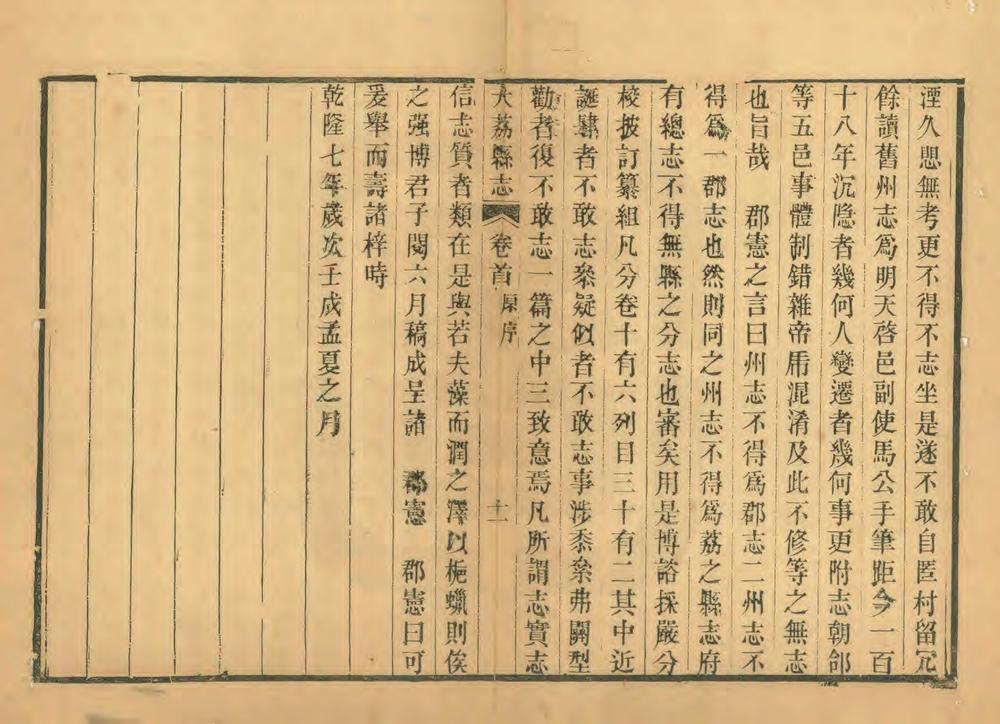 湮久愳無考更不得不志坐是遂不敢自匿村留宂
餘讀舊州志爲明天啓邑副使馬公手筆距今一百
十八年沉隐者幾何人變遷者幾何事更附志朝郃
等五邑事體制錯雜帝乕混淆及此不修等之無志
也旨哉　郡憲之言曰州志不得爲郡志二州志不
得爲一郡志也然則同之州志不得爲荔之縣志府
有總志不得無縣之分志也審矣用是博諮採嚴分
校披訂纂組凡分卷十有六列目三十有二其中近
誕肆者不敢志叅疑似者不敢志事涉黍絫弗關型
勸者復不敢志一篇之中三致意焉凡所謂志實志
大荔縣志　卷首　原序　十一
信志質者類在是與若夫藻而潤之澤以梔蠟則俟
之强博君子閱六月稿成呈諸　郡憲　郡憲曰可
爰舉而壽諸梓時
乾隆七年歲次壬戌孟夏之月